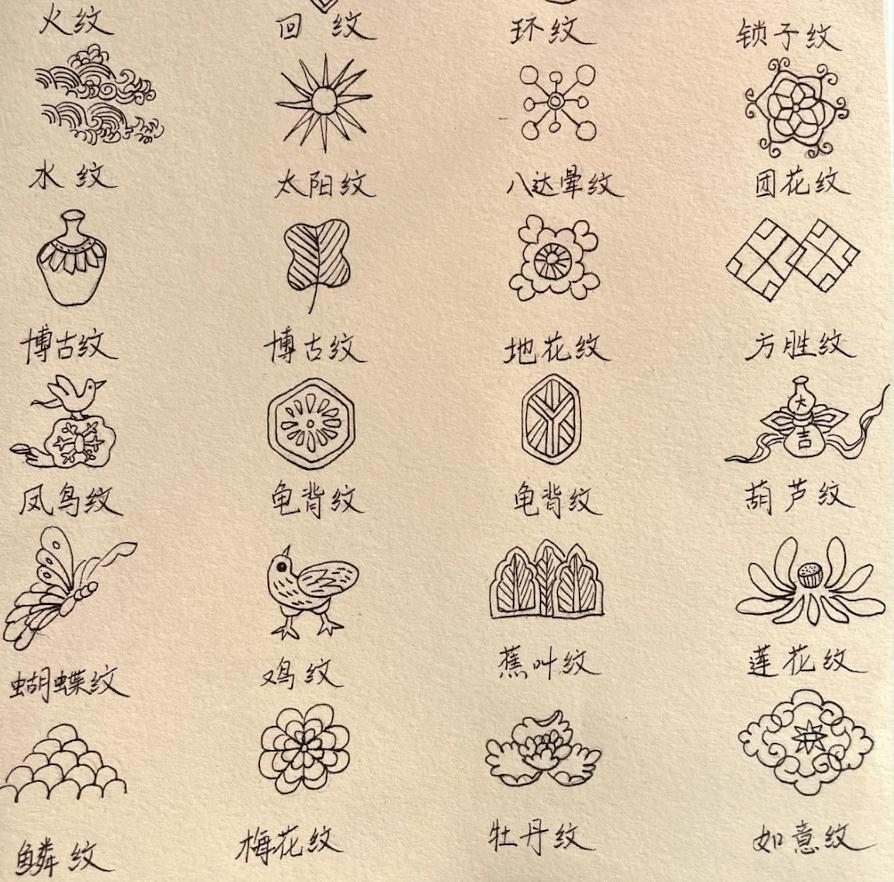 火纹 回纹 环纹 锁子纹
水纹 太阳纹 八达晕纹 团花纹
博古纹 博古纹 地花纹 方胜纹
大
吉
凤鸟纹 龟背纹 龟背纹 葫芦纹
蝴蝶纹 鸡纹 蕉叶纹 莲花纹
鳞纹 梅花纹 牡丹纹 如意纹